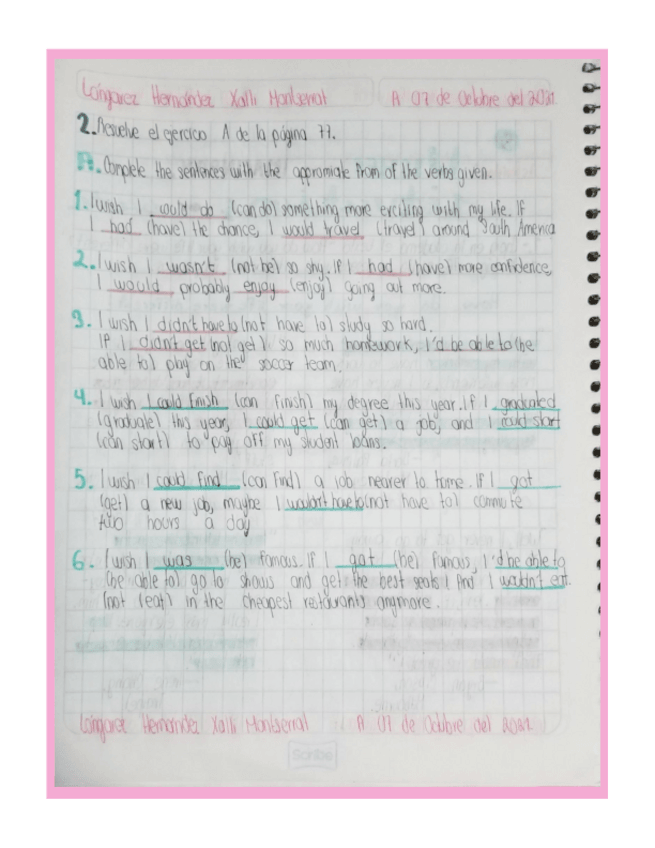 Longarez Hernandez Xalli Montserrat A 07 de Octubre del 2021.
2. Resuelve el ejercicio A de la página 77.
A. Complete the sentences with the appromiate from of the verbs given.
1. I wish I could do (can do) something more exciting with my life. If
I had (have) the chance, I would travel (travel) around South America
2. I wish I wasn't (not be) so shy. If I had (have) more confidence,
I would probably enjoy (enjoy) going out more.
3. I wish I didn't have to (not have to) study so hard.
If I didn't get (not get) so much homework, I'd be able to (be
able to) play on the soccer team.
4. I wish I could finish (can finish) my degree this year. If I graduated
(graduate) this year, I could get (can get) a job, and I could start
(can start) to pay off my student loans.
5. I wish I could find (can find) a job nearer to home. If I got
(get) a new job, maybe I wouldn't have to (not have to) commute
two hours a day
6. I wish I was (be) famous. If I got (be) famous, I'd be able to
(be able to) go to shows and get the best seats! And I wouldn't eat.
(not (eat) in the cheapest restaurants anymore.
Longarez Hernandez Xalli Montserrat A 07 de Octubre del 2021.
Scribe